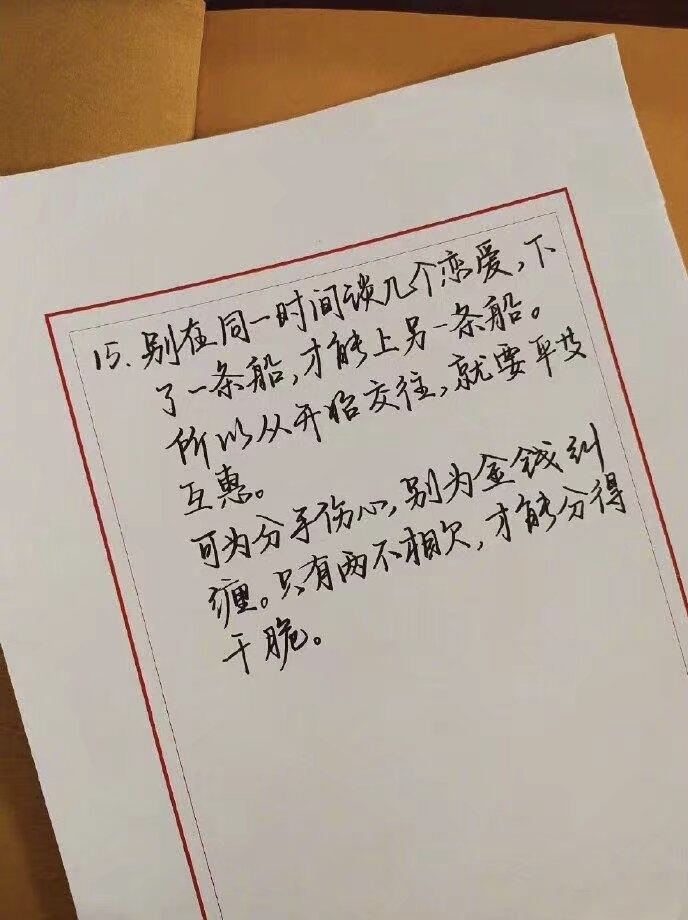 15. 别在同一时间谈几个恋爱，下
了一条船，才能上另一条船。
所以从开始交往，就要平等
互惠。
可为分手伤心，别为金钱纠
缠。只有两不相欠，才能分得
干脆。